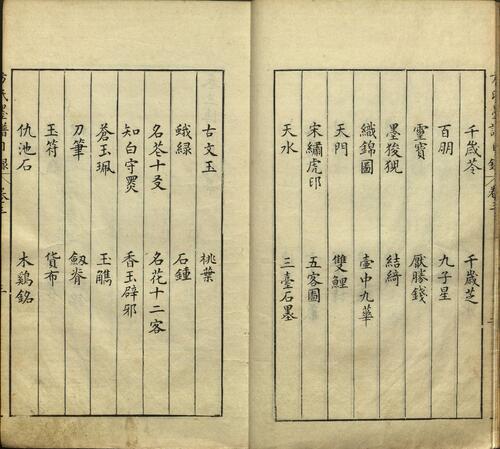 千歲苓　千歲芝
百朋　九子星
靈寶　厭勝錢
墨狻猊　結綺
織錦圖　壺中九華
天門　雙鯉
宋繡虎印　五客圖
天水　三臺石墨
古文玉　桃葉
蛾綠　石鍾
名芲十友　名花十二客
知白守黑　香玉辟邪
蒼玉珮　玉觿
刀筆　劒脊
玉符　貨布
仇池石　木鷄銘
方氏墨譜目錄　卷三